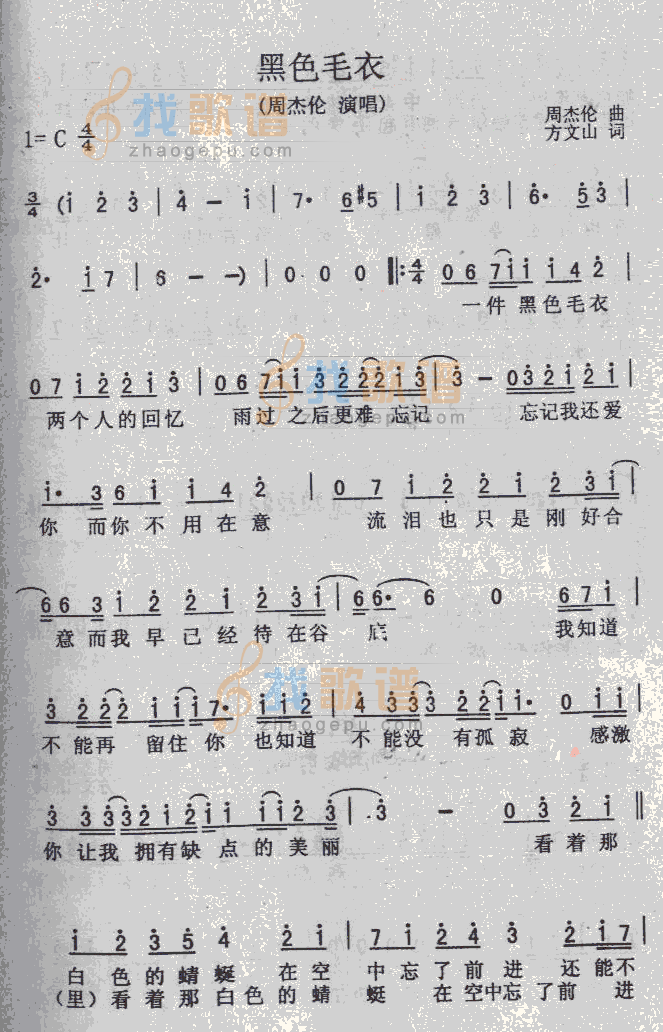 黑色毛衣
(周杰伦 演唱)
周杰伦 曲
1= C 4/4
方文山 词
找歌谱
zhaogepu.com
3/4 (i 2 3 | 4 - i | 7· 6 #5 | i 2 3 | 6· 5 3 |
2· i 7 | 6 - -) | 0 0 0 ‖: 4/4 0 6 7 i i i i 4 2 |
一件 黑色毛衣
0 7 i 2 2 i 3 | 0 6 7 i i 3 2 2 2 i 3 | 3 - 0 3 2 i 2 i |
两个人的回忆 雨过 之后更难 忘记 忘记我还爱
找歌谱
zhaogepu.com
i· 3 6 i i 4 2 | 0 7 i 2 2 i 2 3 i |
你 而你不用在意 流泪也只是刚好合
6 6 3 i 2 2 i 2 3 i | 6 6· 6 0 6 7 i |
意而我早已经待在谷 底 我知道
3 2 2 2 i i i 7· i i 2 | 4 3 3 3 2 2 i i· 0 i i |
找歌谱
zhaogepu.com
不能再 留住你 也知道 不能没 有孤寂 感激
3 3 3 3 2 i 2 i i i i 2 3 | 3 - 0 3 2 i ‖
你 让我 拥有缺 点的美丽 看着那
i 2 3 5 4 2 i | 7 i 2 4 3 2 i 7 |
白色的蜻蜓 在空 中忘了前进 还能不
(里)看着那白色的蜻 蜓 在空中忘了前 进